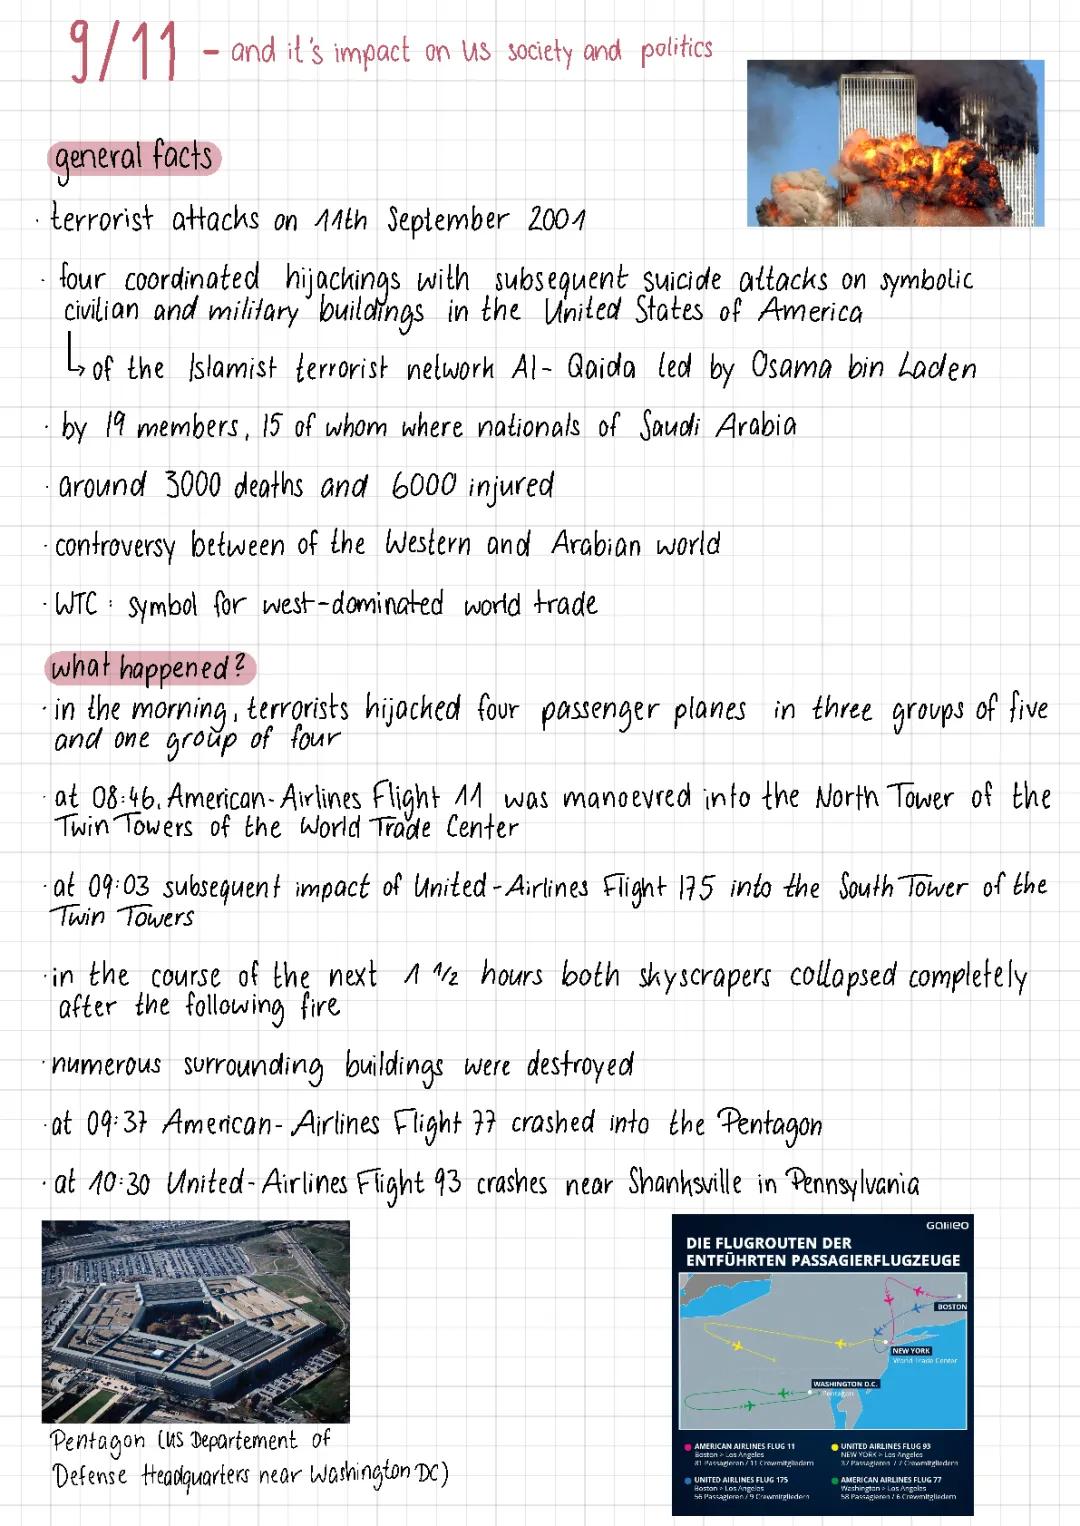 9/11 - and it's impact on US society and politics
general facts
· terrorist attacks on 11th September 2001
· four coordinated hijackings with subsequent suicide attacks on symbolic
civilian and military buildings in the United States of America
↳ of the Islamist terrorist network Al-Qaida led by Osama bin Laden
· by 19 members, 15 of whom where nationals of Saudi Arabia
· around 3000 deaths and 6000 injured
· controversy between of the Western and Arabian world
· WTC: symbol for west-dominated world trade
what happened?
· in the morning, terrorists hijacked four passenger planes in three groups of five
and one group of four
· at 08:46, American-Airlines Flight 11 was manoevred into the North Tower of the
Twin Towers of the World Trade Center
· at 09:03 subsequent impact of United-Airlines Flight 175 into the South Tower of the
Twin Towers
· in the course of the next 1 1/2 hours both skyscrapers collapsed completely
after the following fire
· numerous surrounding buildings were destroyed
· at 09:37 American-Airlines Flight 77 crashed into the Pentagon
· at 10:30 United-Airlines Flight 93 crashes near Shanksville in Pennsylvania
Pentagon (US Departement of
Defense Headquarters near Washington DC)
Galileo
DIE FLUGROUTEN DER
ENTFÜHRTEN PASSAGIERFLUGZEUGE
BOSTON
NEW YORK
World Trade Center
WASHINGTON D.C.
Pentagon
AMERICAN AIRLINES FLUG 11
Boston > Los Angeles
81 Passagieren / 11 Crewmitgliedern
UNITED AIRLINES FLUG 93
NEW YORK > Los Angeles
37 Passagieren / 7 Crewmitgliedern
UNITED AIRLINES FLUG 175
Boston > Los Angeles
56 Passagieren / 9 Crewmitgliedern
AMERICAN AIRLINES FLUG 77
Washington > Los Angeles
58 Passagieren / 6 Crewmitgliedern